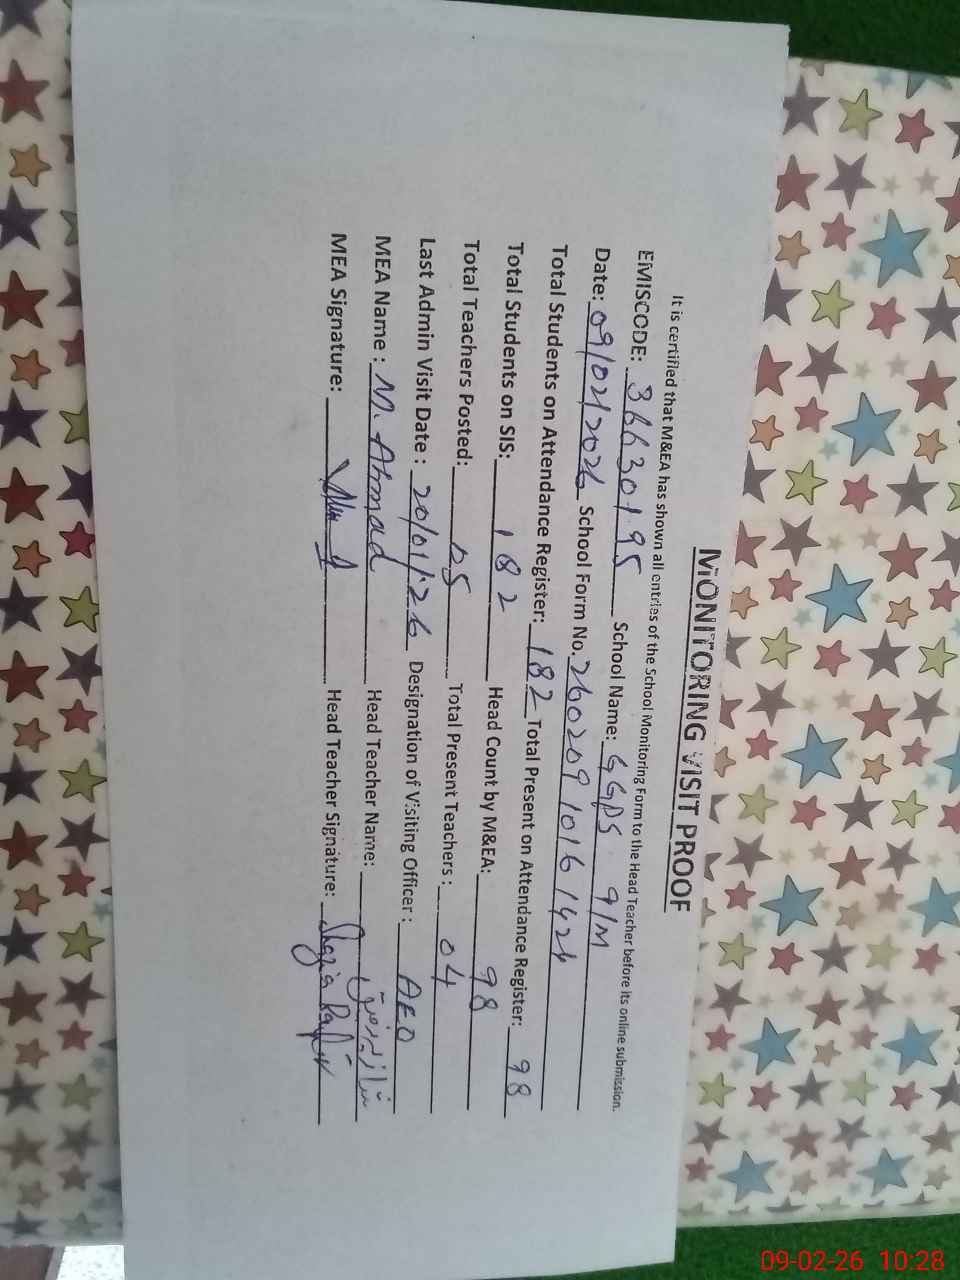 MONITORING VISIT PROOF
It is certified that M&EA has shown all entries of the School Monitoring Form to the Head Teacher before its online submission.
EMISCODE: 36630195 School Name: GGPS 91M
Date: 09/02/2026 School Form No. 26020910161424
Total Students on Attendance Register: 182 Total Present on Attendance Register: 98
Total Students on SIS: 182 Head Count by M&EA: 98
Total Teachers Posted: 05 Total Present Teachers : 04
Last Admin Visit Date : 20/01/26 Designation of Visiting Officer : AEO
MEA Name : M. Ahmad Head Teacher Name: شازیہ رفیق
MEA Signature: Head Teacher Signature: Shazia Rafiq
09-02-26 10:28